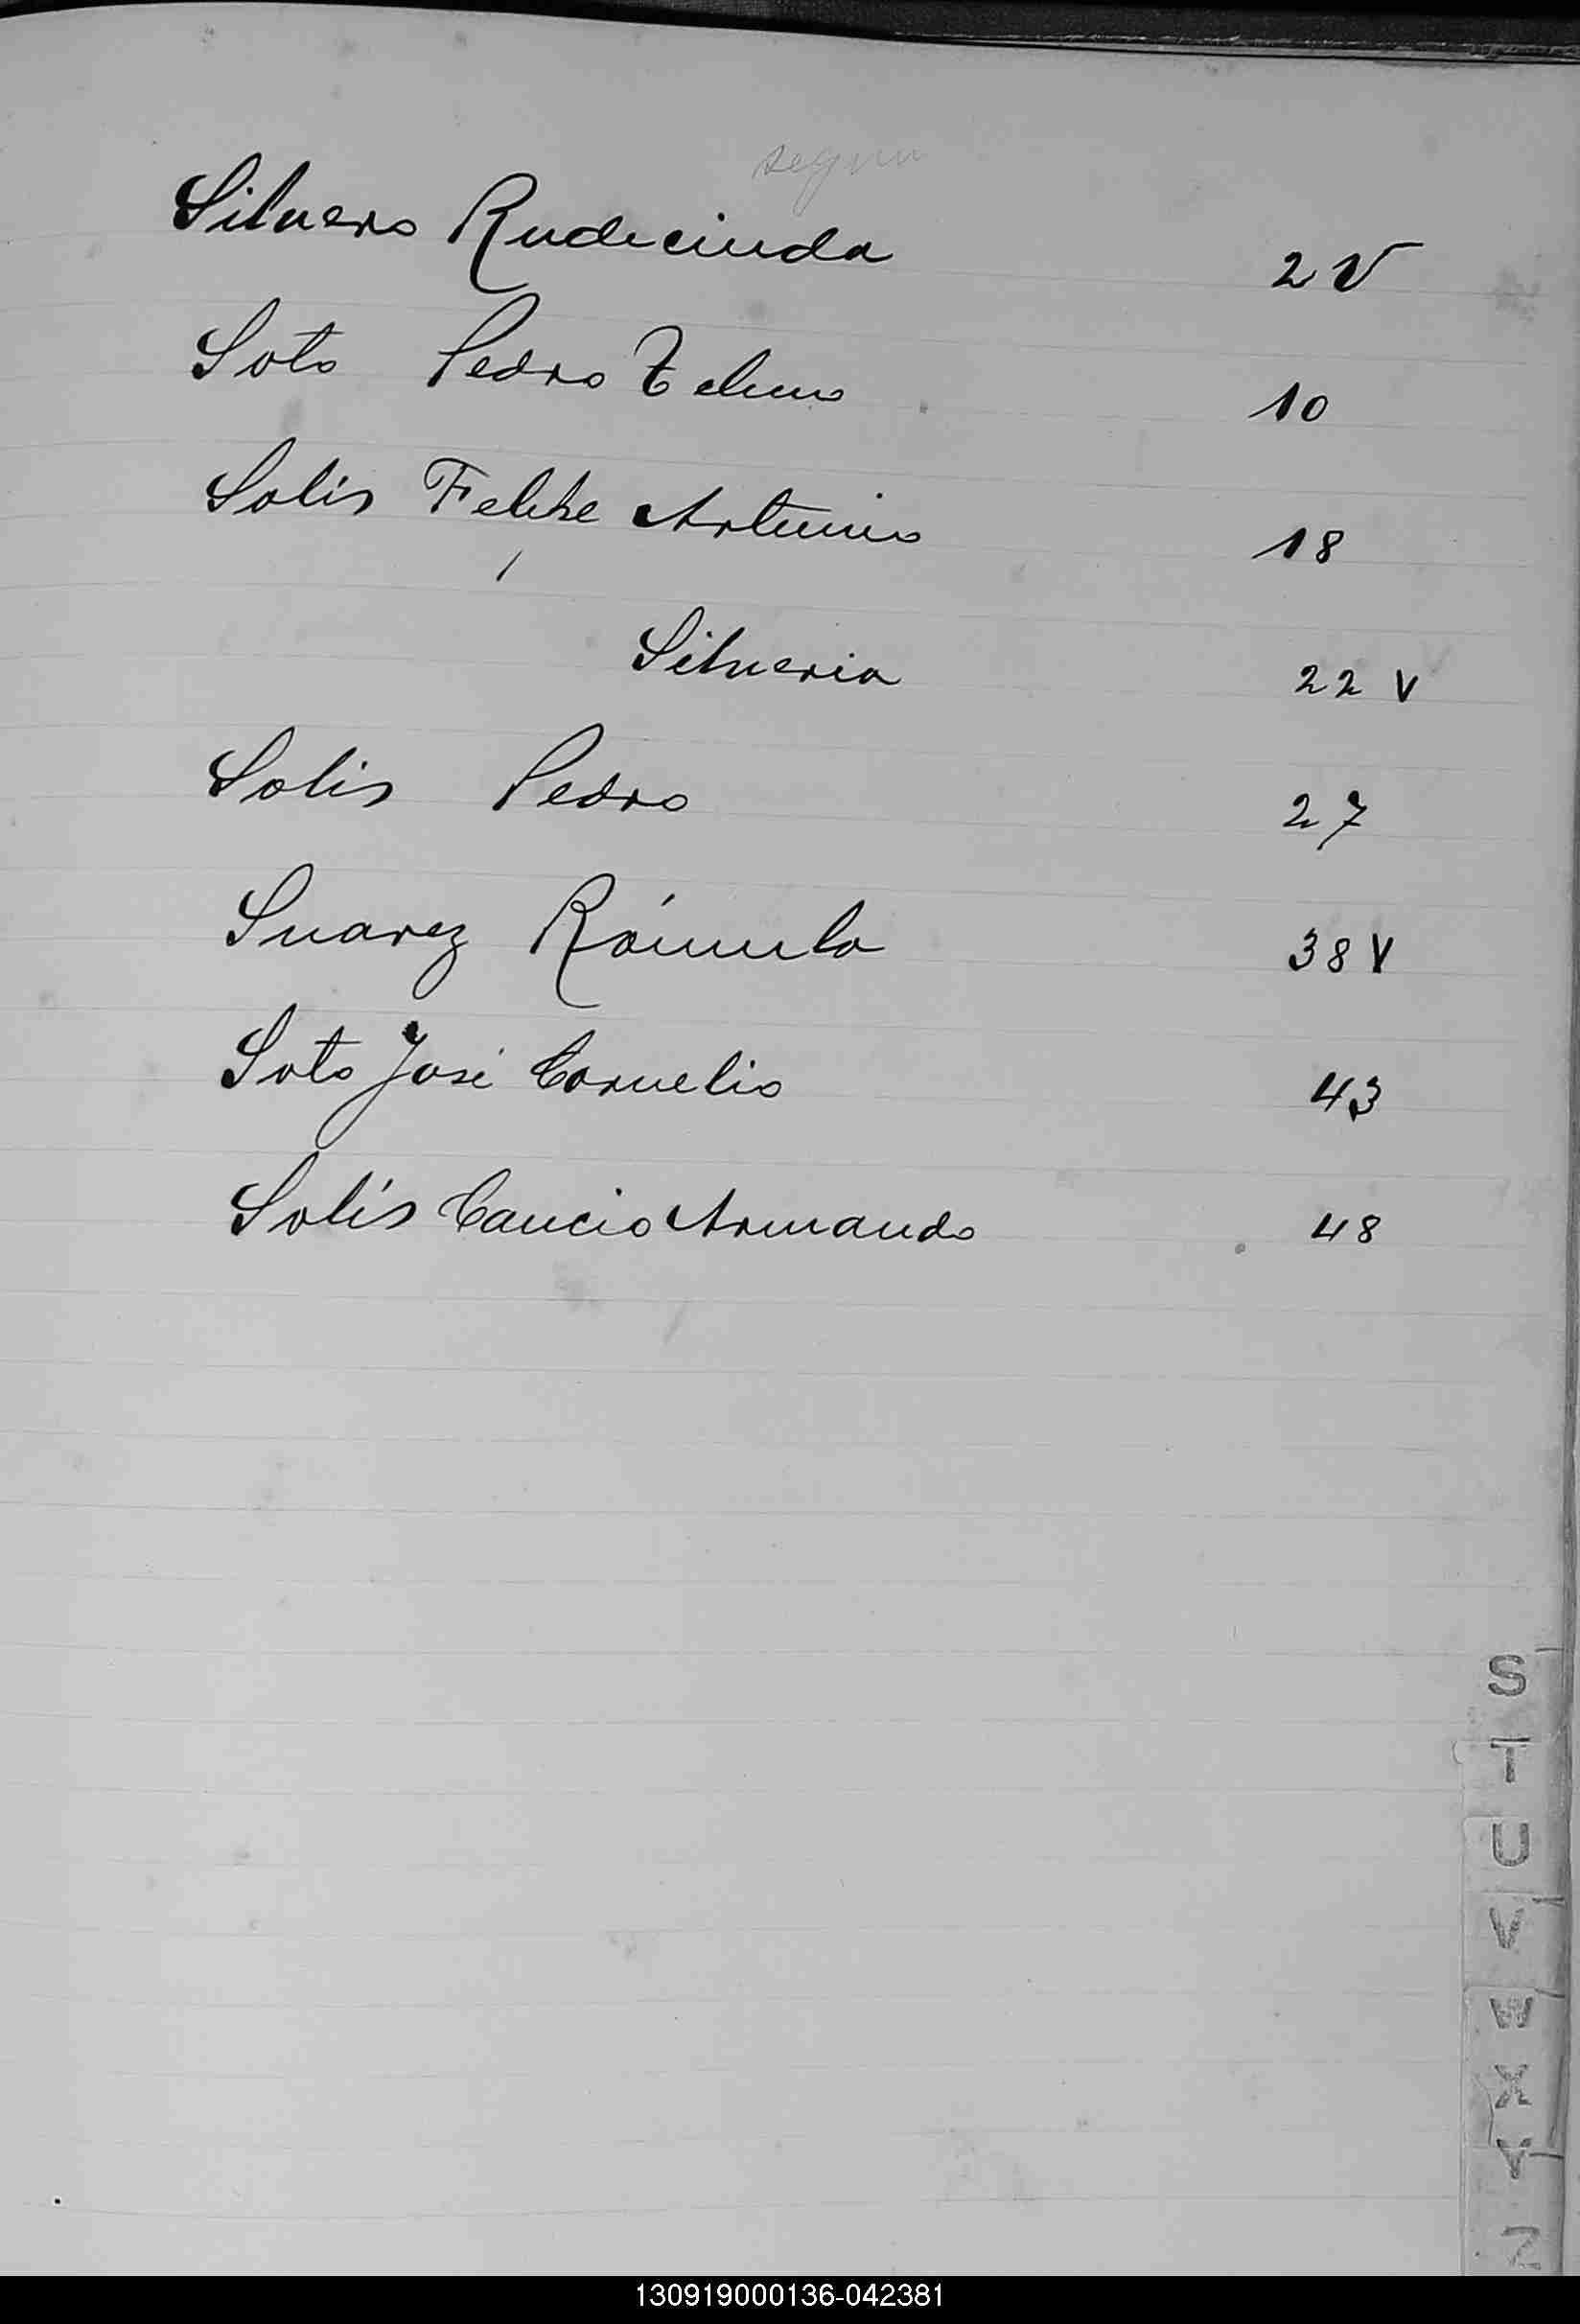 Silvero Rudecinda 2 V
Soto Pedro Telmo 10
Solis Felipe Antonio 18
Silveria 22 V
Solis Pedro 27
Suarez Rómula 38 V
Soto José Cornelio 43
Solís Cancio Armando 48
S
T
U
V
W
X
Y
Z
130919000136-042381